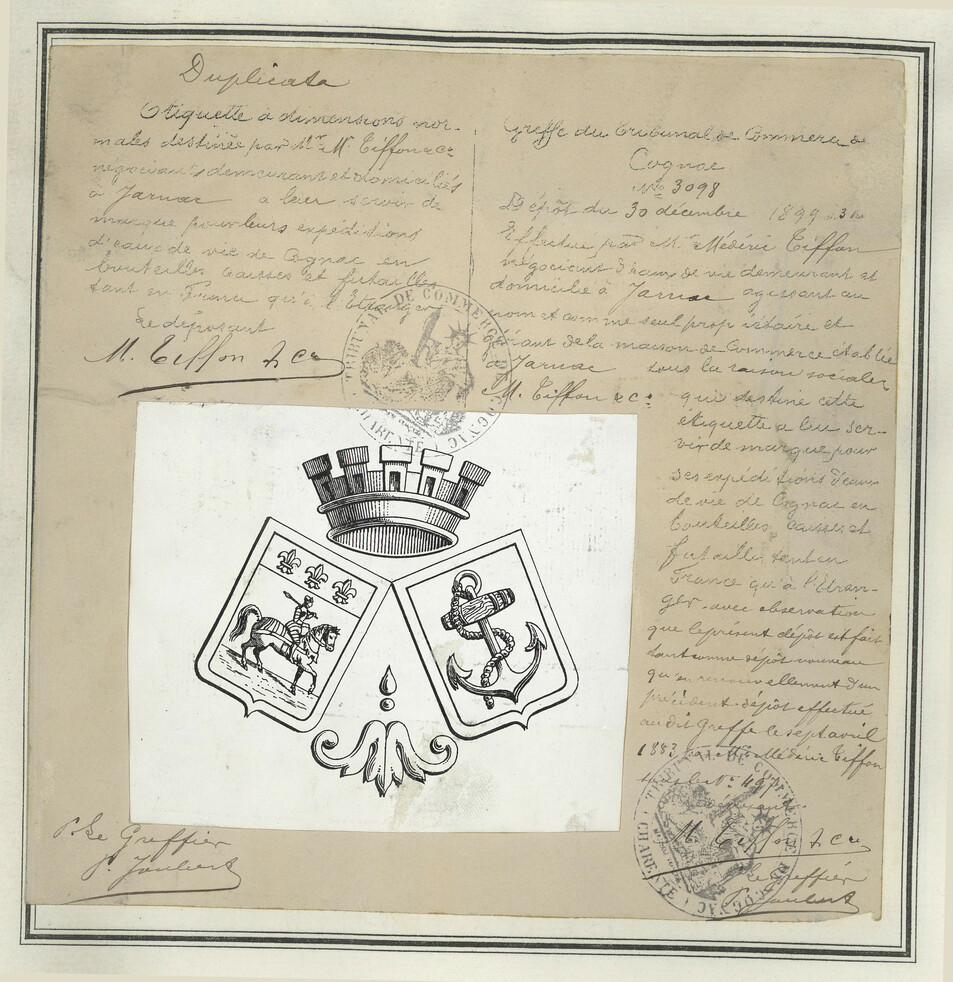 Duplicata
Etiquette à dimensions nor-
males destinée par Mrs M. Tiffon & Ce
négociants demeurant et domiciliés
à Jarnac a leur servir de
marque pour leurs expéditions
d'eaux de vie de Cognac en
bouteilles caisses et futailles
tant en France qu'à l'Etranger
Le déposant
M. Tiffon & Ce
Greffe du Tribunal de Commerce de
Cognac
No 3098
Dépôt du 30 décembre 1899 à 3h
Effectué par Mr Médéric Tiffon
négociant d'eaux de vie demeurant et
domicilié à Jarnac agissant au
nom et comme seul propriétaire et
gérant de la maison de Commerce établie
à Jarnac sous la raison sociale
M. Tiffon & Ce qui destine cette
étiquette a leu ser-
vir de marque pour
ses expéditions d'eaux
de vie de Cognac en
bouteilles caisses et
futailles tant en
France qu'à l'Etran-
ger avec observation
que le présent dépôt est fait
tant comme dépôt nouveau
qu'en renouvellement d'un
précédent dépôt effectué
au dit Greffe le sept avril
1883 par Mr Médéric Tiffon
No 497
Le déposant
M. Tiffon & Ce
Le Greffier
P. Joubert
P. Le Greffier
P. Joubert
TRIBUNAL DE COMMERCE DE COGNAC
CHARENTE
TRIBUNAL DE COMMERCE DE COGNAC
CHARENTE